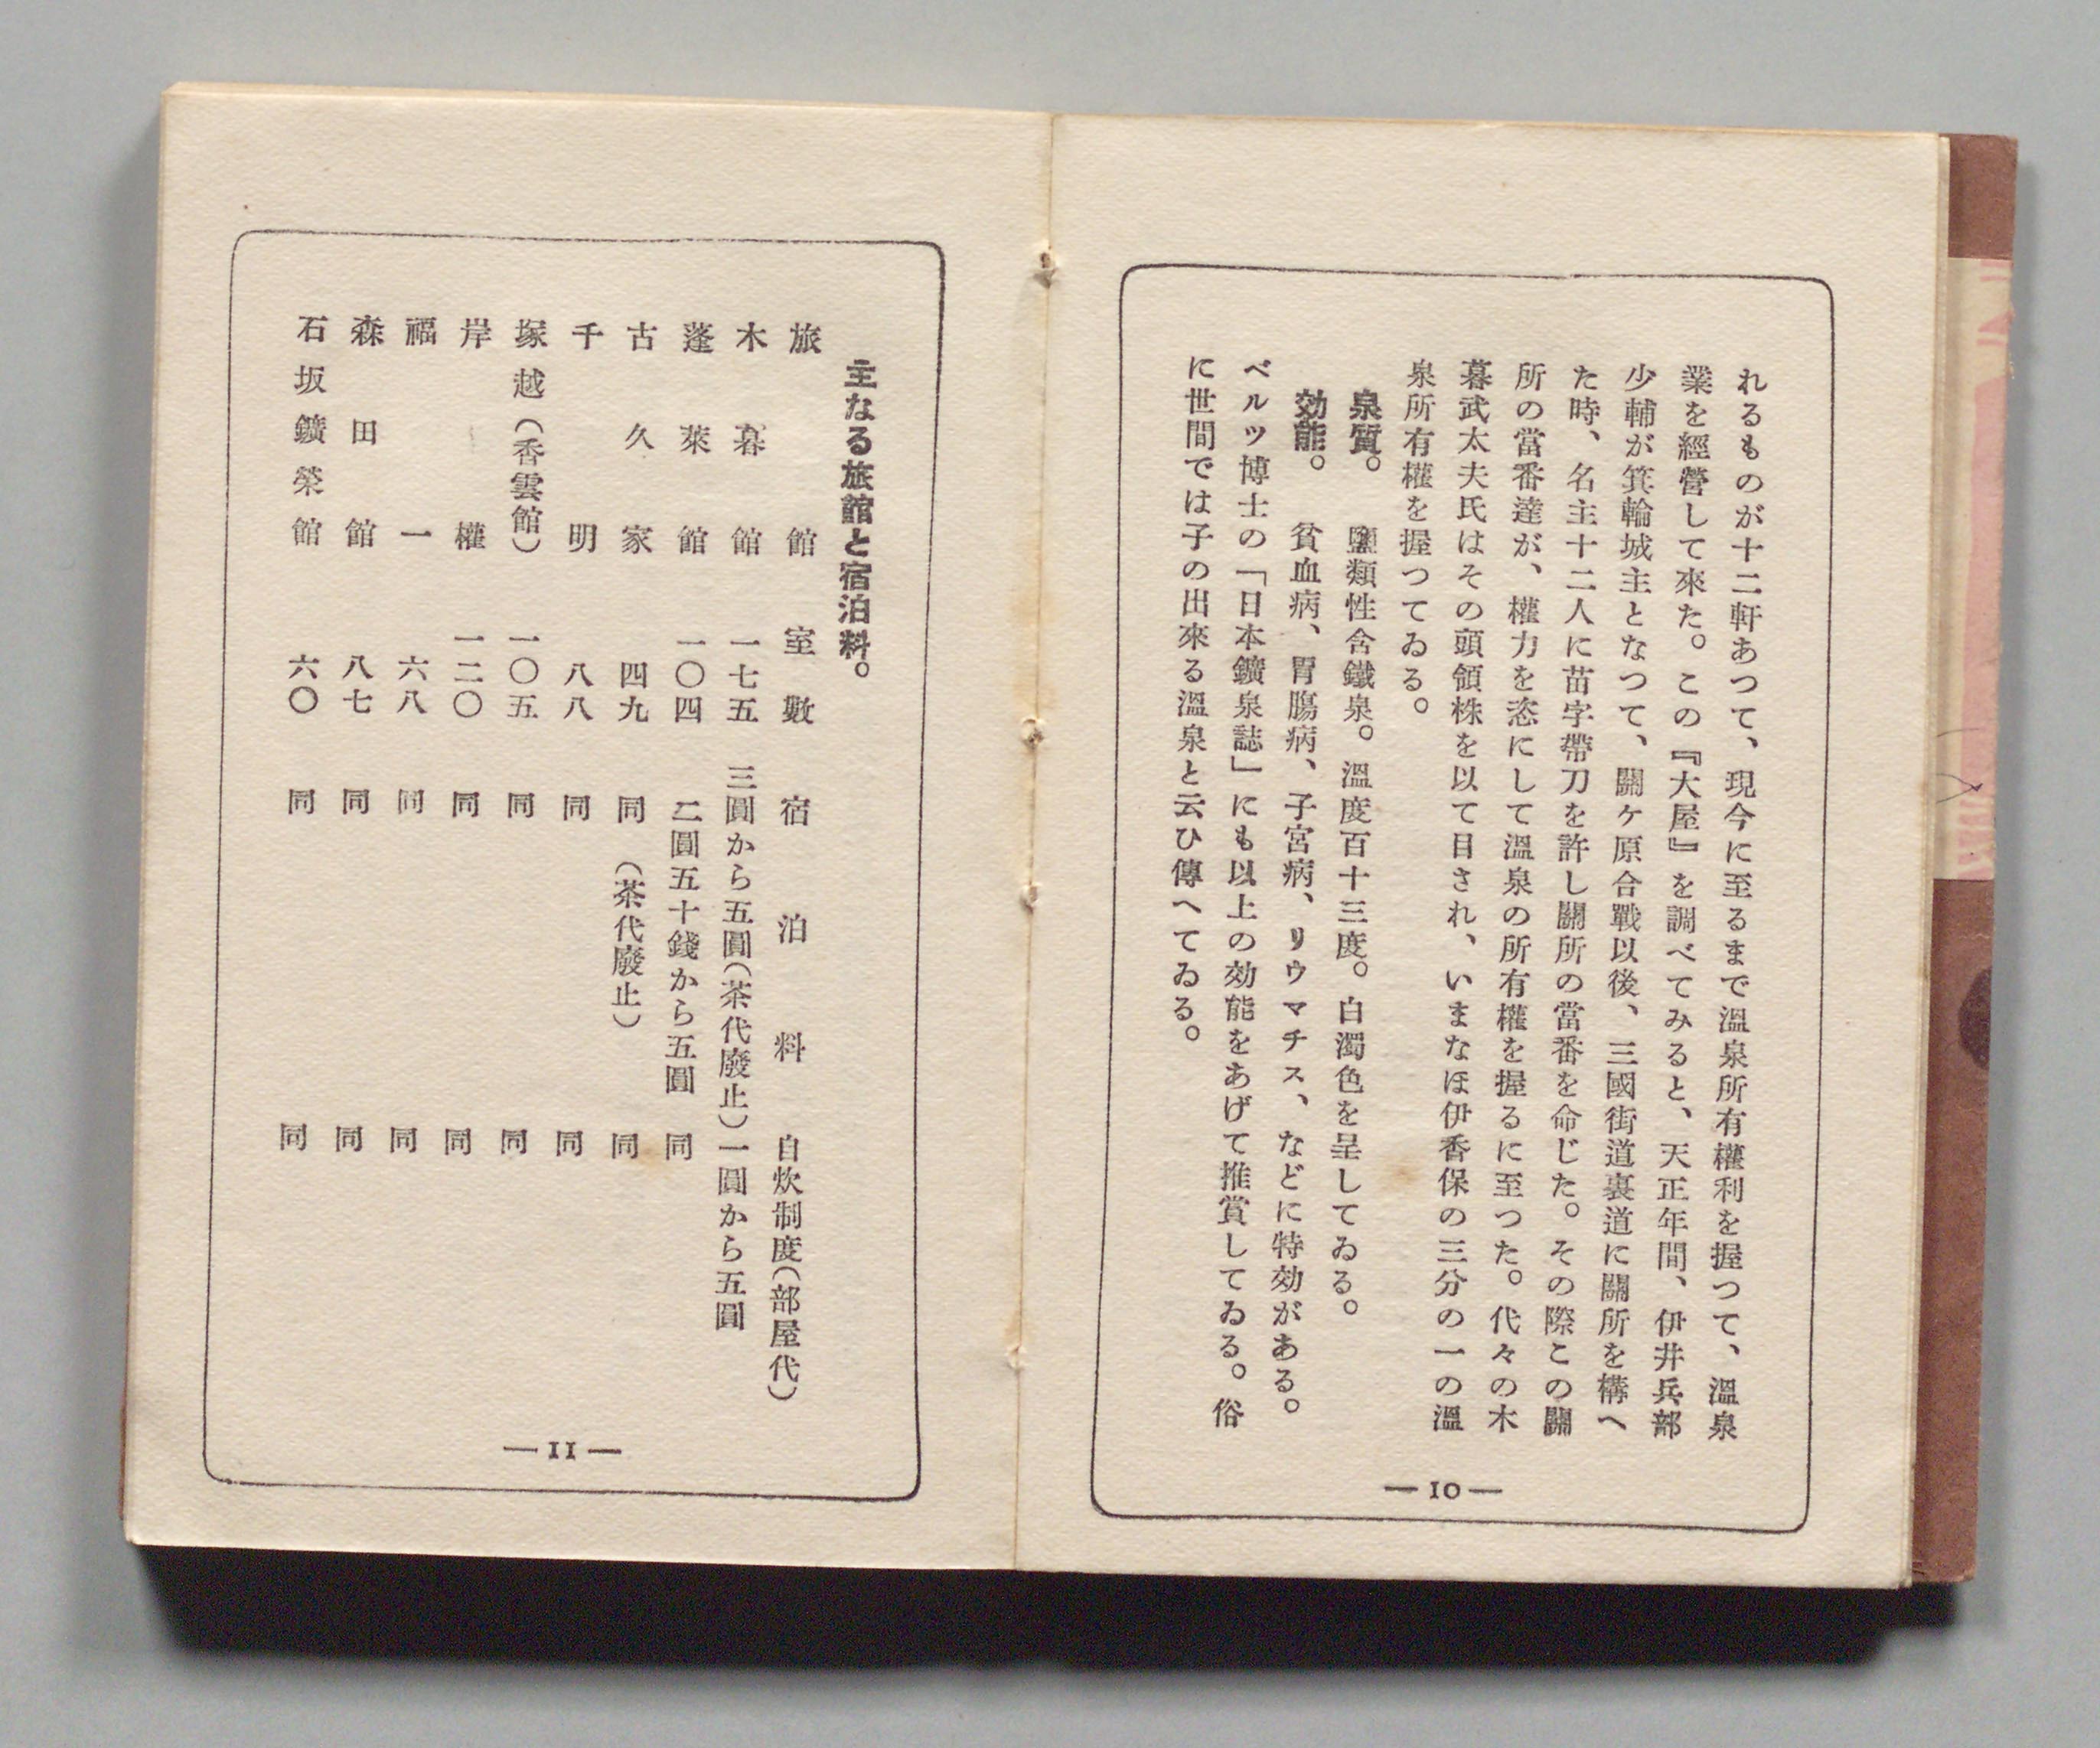 れるものが十二軒あつて、現今に至るまで溫泉所有權利を握つて、溫泉
業を經營して來た。この『大屋』を調べてみると、天正年間、伊井兵部
少輔が箕輪城主となつて、關ケ原合戰以後、三國街道裏道に關所を構へ
た時、名主十二人に苗字帶刀を許し關所の當番を命じた。その際この關
所の當番達が、權力を恣にして溫泉の所有權を握るに至つた。代々の木
暮武太夫氏はその頭領株を以て目され、いまなほ伊香保の三分の一の溫
泉所有權を握つてゐる。
泉質。 鹽類性含鐵泉。溫度百十三度。白濁色を呈してゐる。
効能。 貧血病、胃膓病、子宮病、リウマチス、などに特効がある。
ベルツ博士の「日本鑛泉誌」にも以上の効能をあげて推賞してゐる。俗
に世間では子の出來る溫泉と云ひ傳へてゐる。
— 10 —
主なる旅館と宿泊料。
旅館 室數 宿泊料 自炊制度（部屋代）
木暮館 一七五 三圓から五圓（茶代廢止） 一圓から五圓
蓬萊館 一〇四 二圓五十錢から五圓 同
古久家 四九 同 （茶代廢止） 同
千明 八八 同 同
塚越（香雲館） 一〇五 同 同
岸權 一二〇 同 同
福一 六八 同 同
森田館 八七 同 同
石坂鑛榮館 六〇 同 同
— 11 —